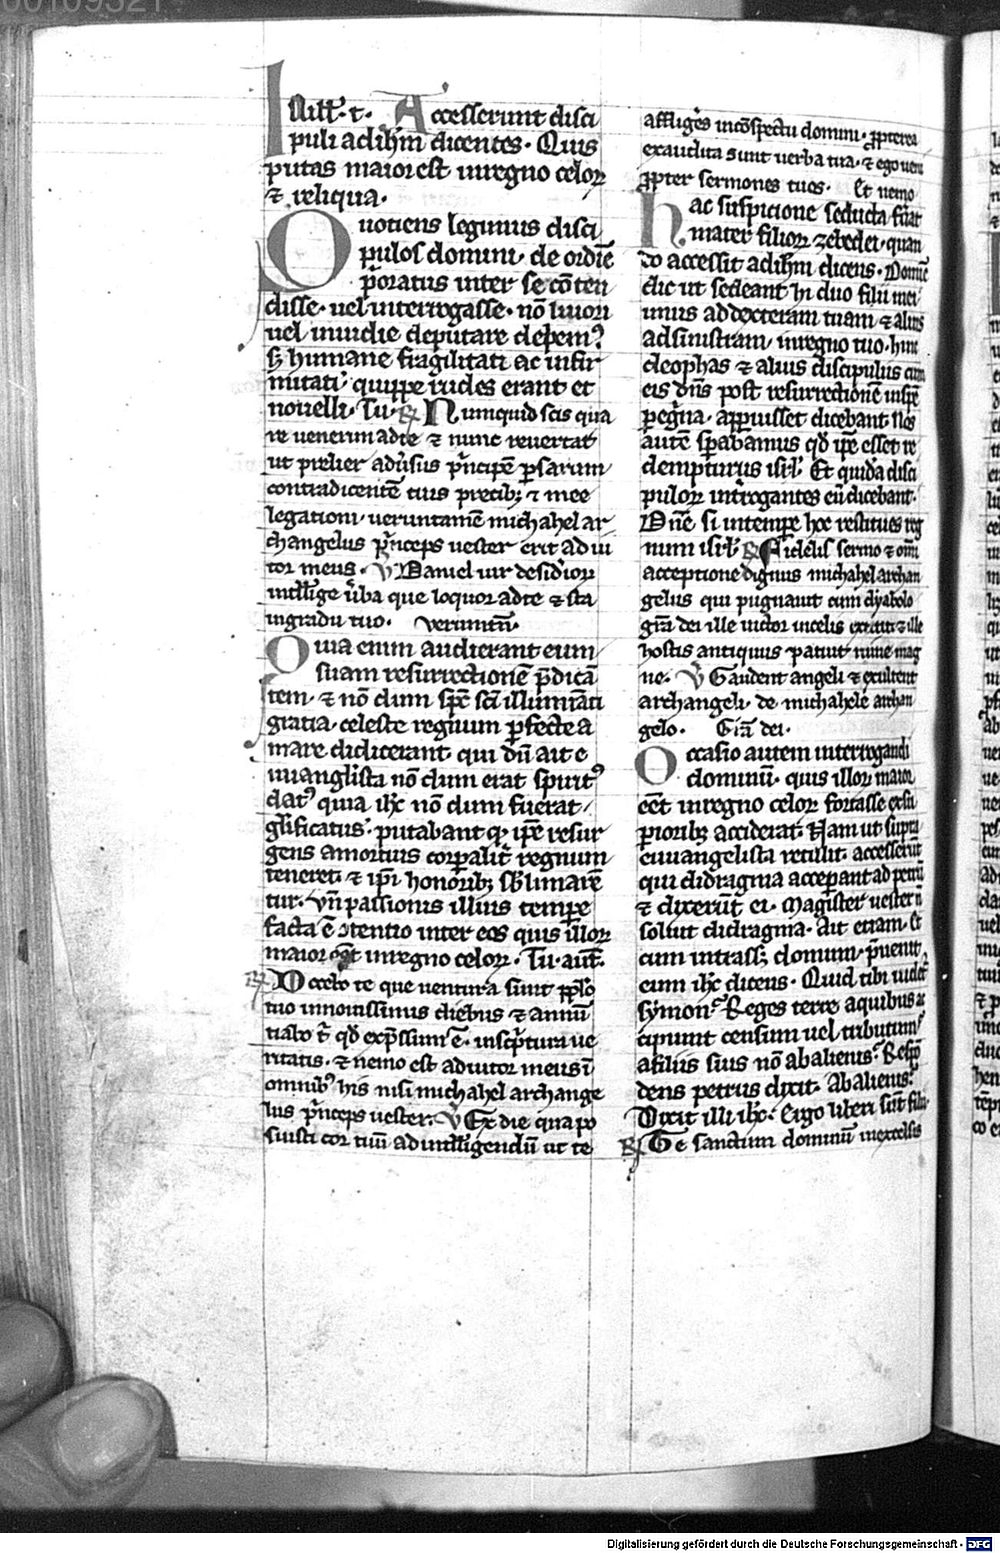 00109321
In ill'. t. Accesserunt disci
puli ad ih'm dicentes. Quis
putas maior est in regno celoꝝ
⁊ reliqua.
Quotiens legimus disci
pulos domini. de ordīe
p̄oratus inter se cōten
disse. uel interrogasse. nō liuori
uel inuidie deputare debem᷒
sꝫ humane fragilitati ac infir
mitati. quippe rudes erant et
nouelli. Tu. ℞ Numquid scis qua
re uenerim ad te ⁊ nunc reuertar
ut prelier adūsus p̄ncipē ꝑsarum
contradicentē tuis precibꝫ ⁊ mee
legationi. ueruntamē michahel ar
changelus p̄nceps uester erit ad iu
tor meus. ℣ Daniel uir desidioꝝ
intellige ūba que loquor ad te ⁊ sta
in gradu tuo. veruntn̄.
Quia enim audierant eum
suam resurrectionē p̄dicā
tem. ⁊ nō dum sp̄c sc̄i illuminati
gratia. celeste regnum ꝑfecte a
mare didicerant. qui dn̄ ait e
uuanglista nō dum erat spirit᷒
dat᷒ quia ihc nō dum fuerat
glificatus. putabant qꝫ ip̄e resur
gens a mortuis corꝑalit̄ regnum
teneret. ⁊ ip̄i honoribꝫ sblimarē
tur. Vn̄ passionis illius tempe
facta ē ꝯtentio inter eos quis illoꝝ
maior eēt in regno celoꝝ. Tu. aut̄.
℞ Docebo te que uentura sunt pp̄lo
tuo in nouissimis diebus ⁊ annū
tiabo t̄ qd exp̄ssum ē. in sc̄ptura ue
ritatis. ⁊ nemo est adiutor meus ī
omnibᷤ his nisi michahel archange
lus p̄nceps uester. ℣ Ex die qua po
suisti cor tuū ad intelligendū ut te
affliḡes in cōspectu domini. ꝓpterea
exaudita sunt uerba tua. ⁊ ego ueni
ꝓpter sermones tuos. Et nemo
Hac suspicione seducta fūat
mater filioꝝ zebedei. quan
do accessit ad ih'm dicens. Domīe
dic ut sedeant hi duo filii mei
unus ad dexteram tuam ⁊ alius
ad sinistram. in regno tuo. hinc
cleophas ⁊ alius discipulus cum
eis dn̄s post resurrectionē in spē
peḡna. apparuisset dicebant Nos
autē sp̄abamus qd ip̄e esset re
dempturus isrl. Et quidā disci
puloꝝ int̄rogantes eū dicebant.
Dn̄e si in tempe hoc restitues reg
num isrl. ℞ Fidelis sermo ⁊ omī
acceptione dignus michahel archan
gelus qui pugnauit cum dyabolo
gr̄a dei ille uictor in celis extitit ⁊ ille
hostis antiquus patitur ruinā mag
na. ℣ Gaudent angeli ⁊ exultent
archangeli. de michahele archan
gelo. Gr̄a dei.
Occasio autem interrogandi
dominū. quis illoꝝ maior
eēt in regno celoꝝ fortasse ex su
perioribꝫ acciderat. Nam ut supra
euuangelista retulit. accesserūt
qui didragma accipiant ad petrū
⁊ dixerūt ei. Magister uester ī
soluit didragma. Ait etiam. Et
cum intrassꝫ domum. p̄uenit
eum ihc dicens. Quid tibi uidet̄
symon? Reges terre a quibus ac
cipiunt censum uel tributum?
a filiis suis nō ab alienis? Respō
dens petrus dixit. Ab alienis.
Dixit illi ihc. Ergo liberi sūt filii.
℞ Te sanctum dominū in excelsis
Digitalisierung gefördert durch die Deutsche Forschungsgemeinschaft - DFG